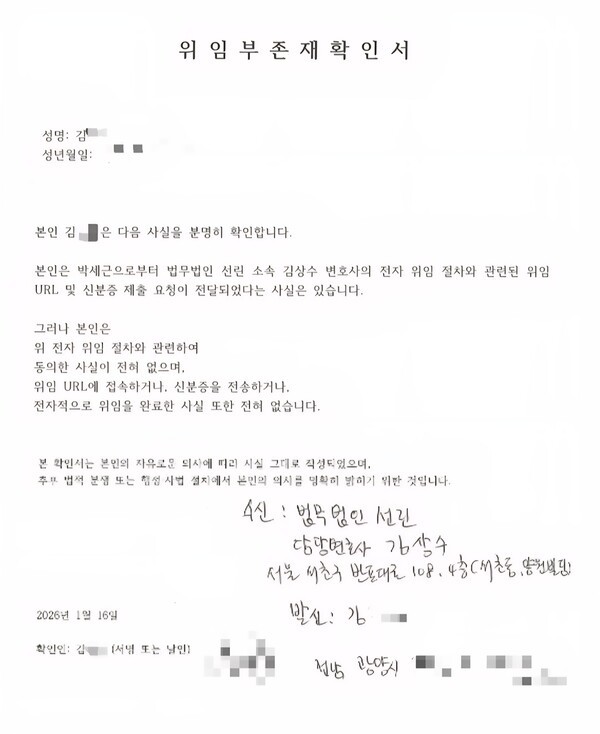 위 임 부 존 재 확 인 서
성명: 김
성년월일:
본인 김 은 다음 사실을 분명히 확인합니다.
본인은 박세근으로부터 법무법인 선린 소속 김상수 변호사의 전자 위임 절차와 관련된 위임
URL 및 신분증 제출 요청이 전달되었다는 사실은 있습니다.
그러나 본인은
위 전자 위임 절차와 관련하여
동의한 사실이 전혀 없으며,
위임 URL에 접속하거나, 신분증을 전송하거나,
전자적으로 위임을 완료한 사실 또한 전혀 없습니다.
본 확인서는 본인의 자유로운 의사에 따라 사실 그대로 작성되었으며,
추후 법적 분쟁 또는 행정·사법 절차에서 본인의 의사를 명확히 밝히기 위한 것입니다.
수신 : 법무법인 선린
담당변호사 김상수
서울 서초구 반포대로 108. 4층(서초동,
발신 : 김
2026년 1월 16일
확인인: 김 (서명 또는 날인)
전남 광양시